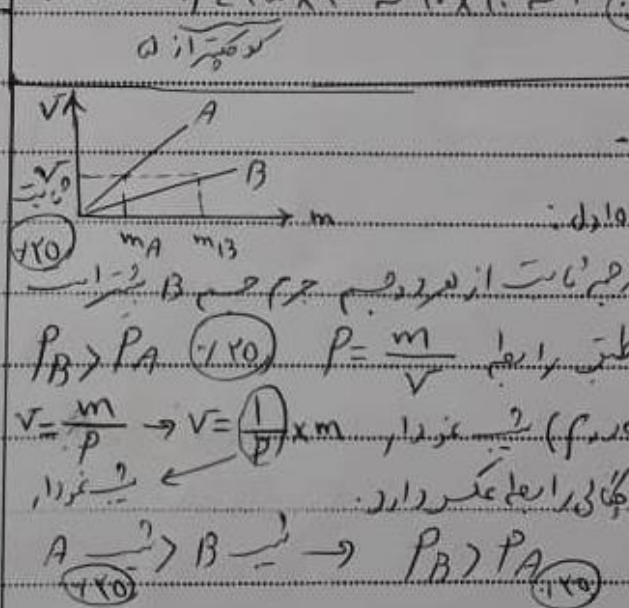 کوچکتر از ۵
V A
V ثابت B
m_A m_B m
۰/۲۵ اول:
حجم ثابت از هر دو جسم جرم جسم B بیشتر است
ρ_B > ρ_A ۰/۲۵ ρ = m/V طبق رابطه
V = m/ρ → V = (1/ρ) × m شیب نمودار (دوم
شیب نمودار ← چگالی رابطه عکس دارد.
شیب A > شیب B → ρ_B > ρ_A
۰/۲۵ ۰/۲۵